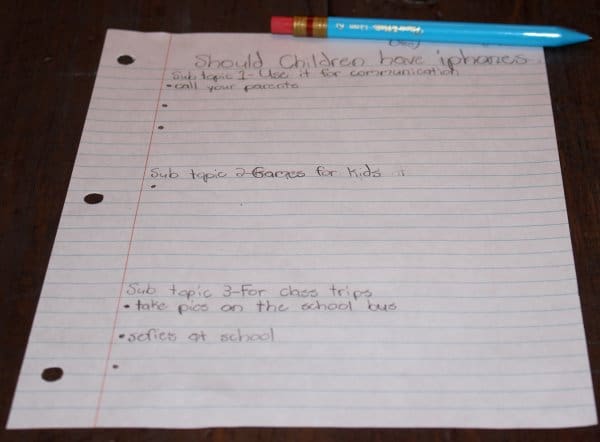 Should Children have iphones
Sub topic 1-Use it for communication
• call your parents
•
•
Sub topic 2-Games for kids
•
Sub topic 3-For class trips
• take pics on the school bus
• selfies at school
•